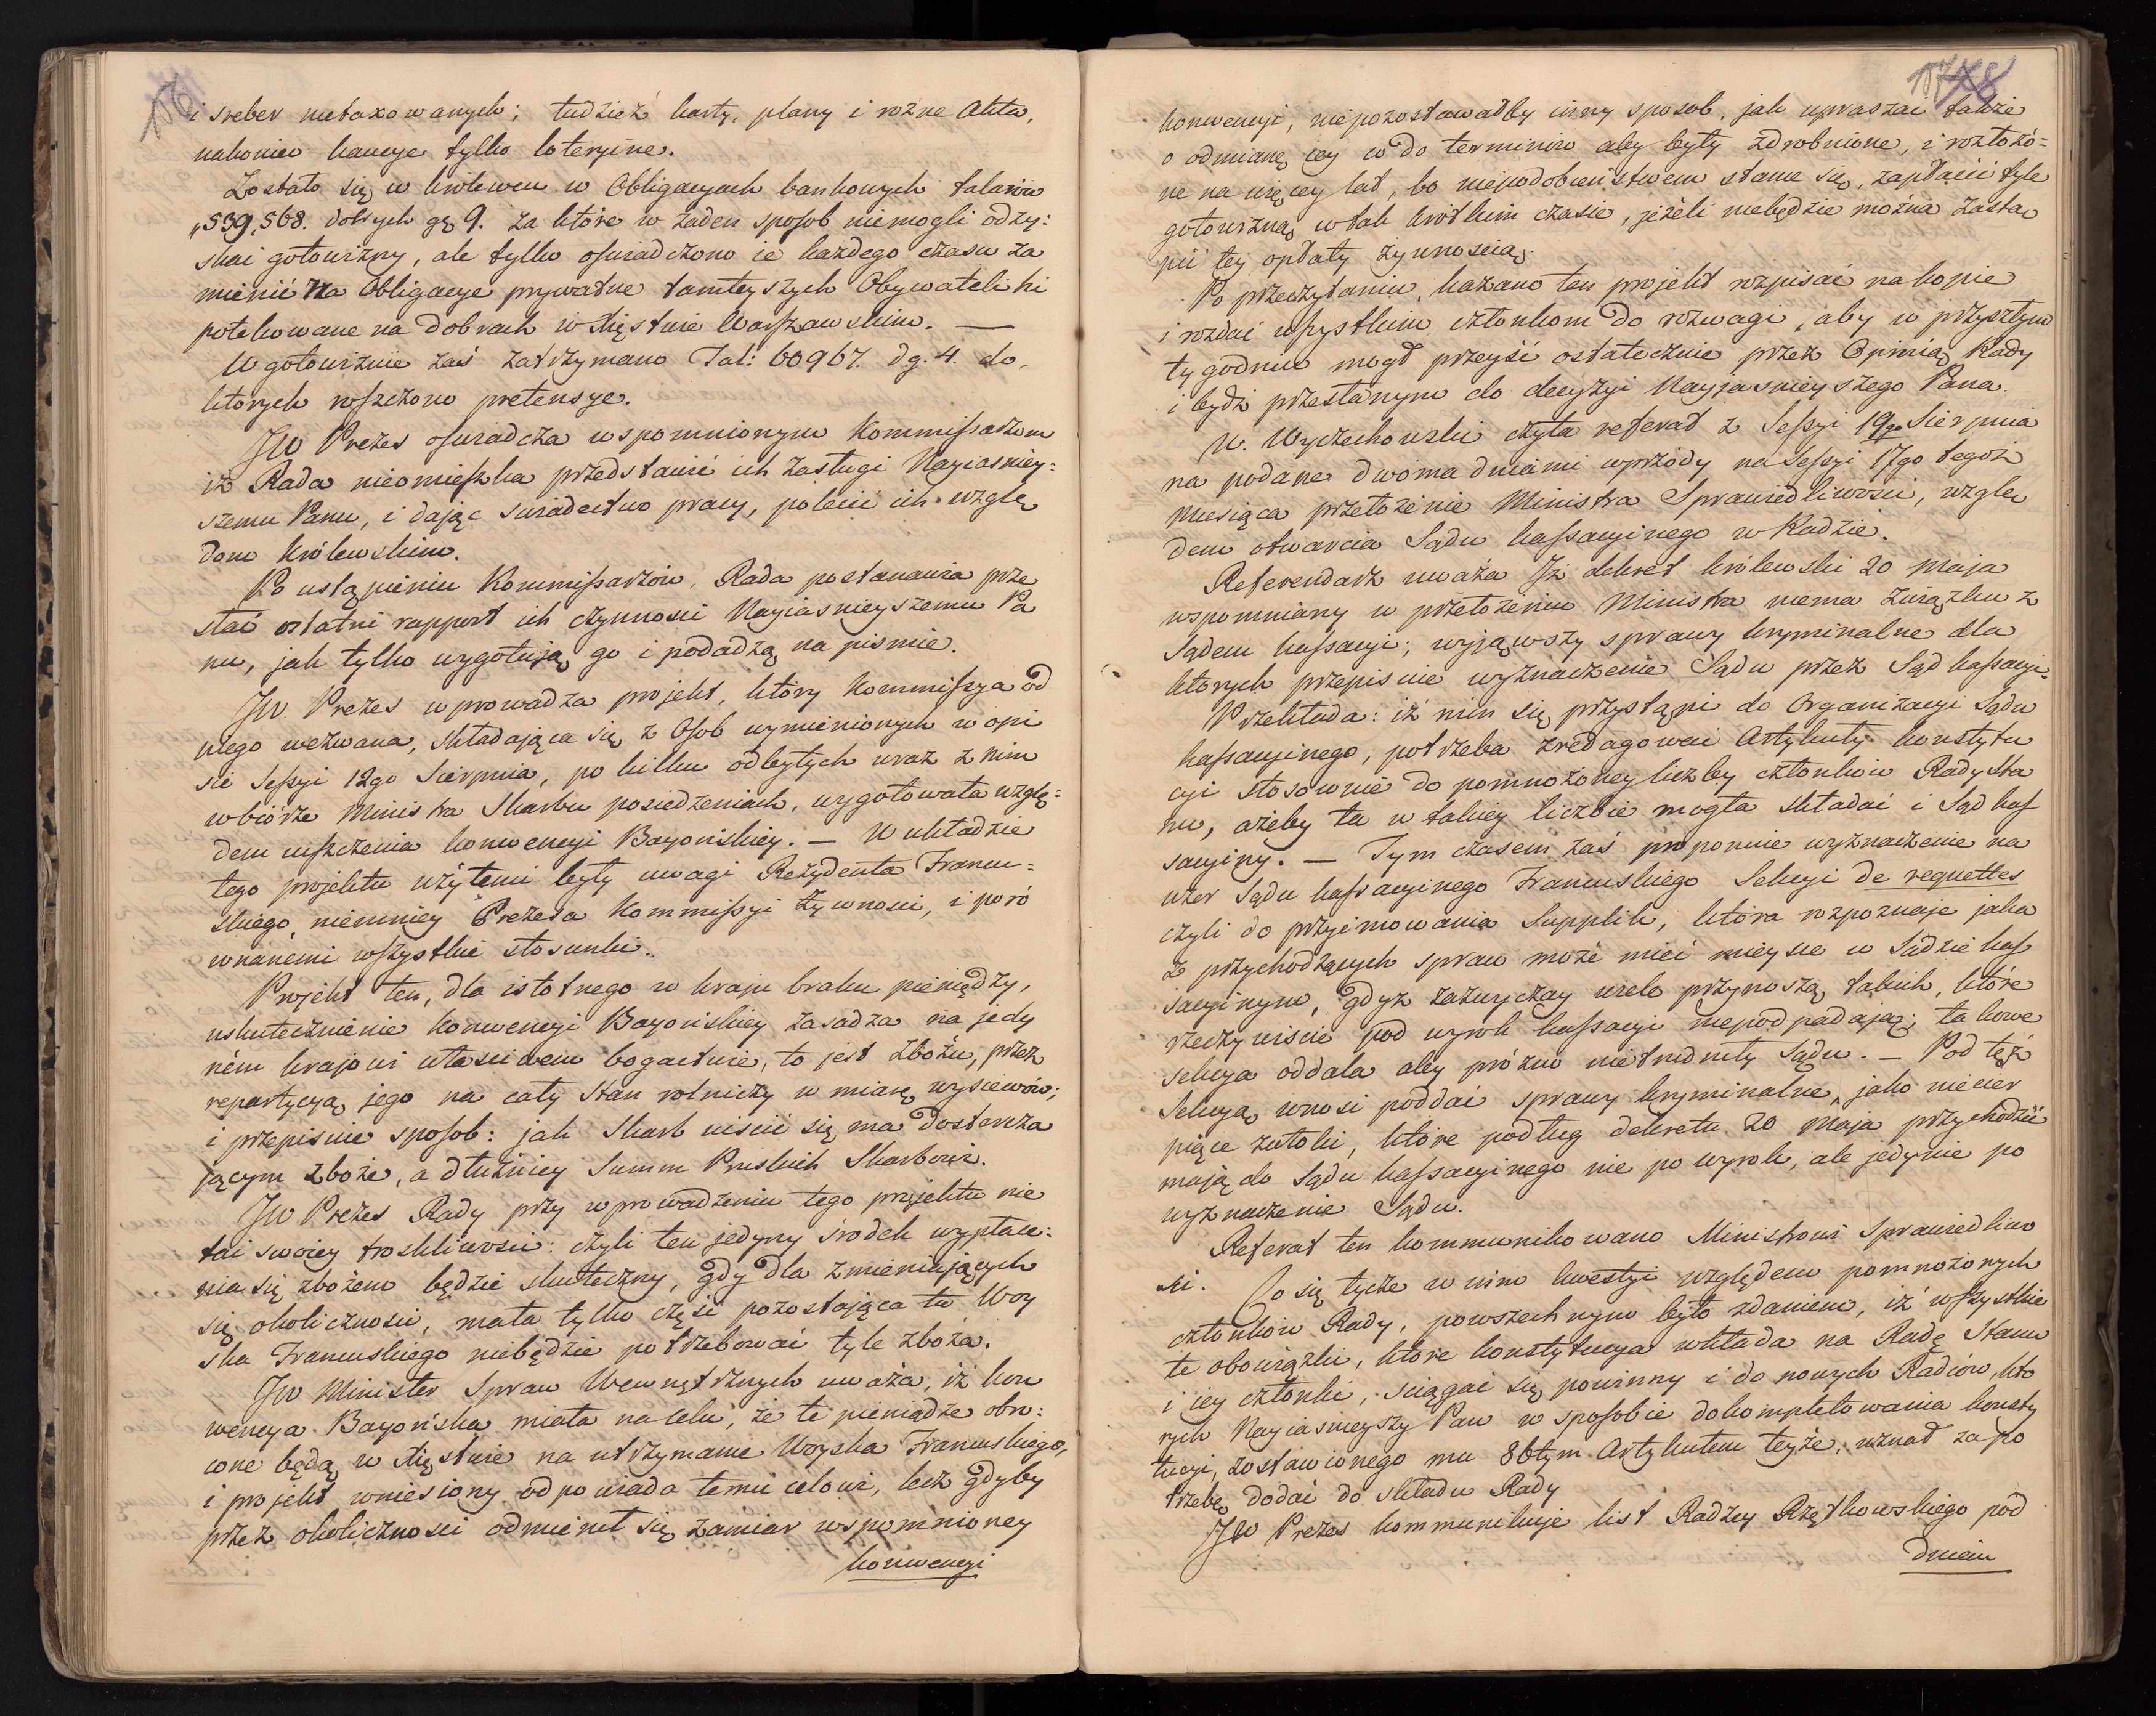 176
i sreber nietaxowanych; tudzież karty, plany i rożne Akta,
nakoniec kaucye tylko loteryine.
Zostało się w Królewcu w Obligacyach bankowych talarów
„539,568. dobrych gę 9. za które w żaden sposob niemogli odzy:
skać gotowizny, ale tylko oswiadczono ie każdego czasu za
mienić na Obligacye prywatne tamteyszych Obywateli hi
potekowane na dobrach w Xięstwie Warszawskim. —
W gotowiznie zaś zatrzymano Tal: 60967. d.g. 4. do,
ktorych roszczono pretensye.
JW Prezes oswiadcza wspomnionym Kommissarzom
iż Rada nieomieszka przedstawić ich zasługi Nayiasniey:
szemu Panu, i dając swiadectwo pracy, polecić ich wzglę
dom Królewskim.
Po ustąpieniu Kommissarzów, Rada postanawia prze
słać ostatni rapport ich czynności Nayiasnieyszemu Pa
nu, jak tylko wygotują go i podadzą na pismie.
JW. Prezes wprowadza projekt, który Kommissya od
niego wezwana, składająca się z Osob wymienionych w opi
sie Sessyi 12go Sierpnia, po kilku odbytych wraz z nim
w biórze Ministra Skarbu posiedzeniach, wygotowała wzglę:
dem uiszczenia konwencyi Bayońskiey. — W układzie
tego projektu użytemi były uwagi Rezydenta Francu=
skiego, niemniey Prezesa Kommissyi Żywnosci, i poró
wnanemi wszystkie stosunki.
Projekt ten, dla istotnego w kraju braku pieniędzy,
uskutecznienie konwencyi Bayońskiey zasadza na jedy
ném krajowi własciwem bogactwie, to jest zbożu, przez
repartycyą jego na cały stan rolniczy w miarę wysiewów;
i przepisuie sposob: jak Skarb uiścić się ma dostarcza
jącym zboże, a dłużnicy Summ Pruskich Skarbowi.
JW Prezes Rady przy wprowadzeniu tego projektu nie
tai swoiey troskliwosci: czyli ten jedyny srodek wypłace:
nia się zbożem będzie skuteczny, gdy dla zmieniających
się okoliczności, mała tylko część pozostająca tu Woy
ska Francuskiego niebędzie potrzebować tyle zboża.
JW Minister Spraw Wewnętrznych uważa, iż kon
wencya Bayońska miała na celu, że te pieniądze obro:
cone będą w Xięstwie na utrzymanie Woyska Francuskiego,
i projekt wniesiony odpowiada temu celowi, lecz gdyby
przez okoliczności odmienił się zamiar wspomnioney
konwencyi
177
konwencyi, niepozostawałby inny sposob, jak upraszać także
o odmianę iey co do terminów aby były zdrobnione, i rozłożo=
ne na więcey lat, bo niepodobieństwem stanie się, zapłacić tyle
gotowizną w tak krótkim czasie, jeżeli niebędzie można zastą
pić tey opłaty żywnością.
Po przeczytaniu, kazano ten projekt rozpisać na kopie
i rozdać wszystkim członkom do rozwagi, aby w przyszłym
tygodniu mogł przeyść ostatecznie przez Opinią Rady
i bydź przesłanym do decyzyi Nayjasnieyszego Pana.
W. Wyczechowski czyta referat z Sessyi 19go Sierpnia
na podane dwoma dniami wprzódy na Sessyi 17go tegoż
Miesiąca przełożenie Ministra Sprawiedliwości, wzglę
dem otwarcia Sądu kassacyinego w Radzie.
Referendarz uważa Iż dekret królewski 20 Maja
wspomniany w przełożeniu Ministra niema związku z
Sądem kassacyi; wyjąwszy sprawy kryminalne dla
ktorych przepisuie wyznaczenie Sądu przez Sąd kassacyi.
Przekłada: iż nim się przystąpi do Organizacyi Sądu
kassacyinego, potrzeba zredagować Artykuły konstytu
cyi stosownie do pomnożoney liczby członków Rady Sta
nu, ażeby ta w takiey liczbie mogła składać i Sąd kas
sacyiny. — Tym czasem zaś proponuie wyznaczenie na
wzor Sądu kassacyinego Francuskiego Sekcyi de requettes
czyli do przyimowania Supplik, która rozpoznaje jaka
z przychodzących spraw może mieć mieysce w Sądzie kas
sacyinym, gdyż zazwyczay wiele przynoszą takich, które
rzeczywiscie pod wyrok kassacyi niepodpadają; takowe
Sekcya oddala aby prózno nietrudniły Sądu. — Pod tęż
Sekcyą wnosi poddać sprawy kryminalne, jako niecier
piące zwłoki, które podług dekretu 20 Maja przychodzić
mają do Sądu kassacyinego nie po wyrok, ale jedynie po
wyznaczenie Sądu.
Referat ten kommunikowano Ministrowi Sprawiedliwo
ści. Co się tycze w nim kwestyi względem pomnożonych
członków Rady, powszechnym było zdaniem, iż wszystkie
te obowiązki, które konstytucya wkłada na Radę Stanu
i iey członki, sciągać się powinny i do nowych Radców, kto
rych Nayiasnieyszy Pan w sposobie dokompletowania konsty
tucyi, zostawionego mu 86tym Artykułem teyże, uznał za po
trzebę dodać do składu Rady
JW Prezes kommunikuje list Radzcy Rzętkowskiego pod
dniem